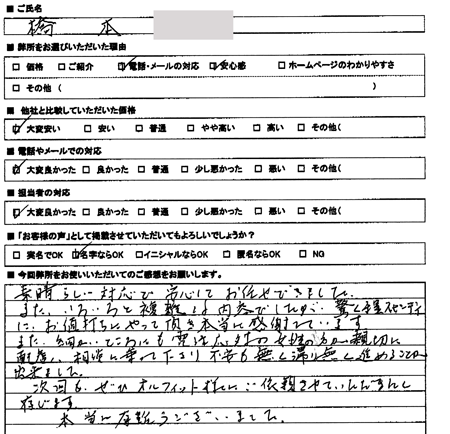 ■ ご氏名
橋本
■ 弊所をお選びいただいた理由
□ 価格 □ ご紹介 ☑ 電話・メールの対応 ☑ 安心感 □ ホームページのわかりやすさ
□ その他 ( )
■ 他社と比較していただいた価格
☑ 大変安い □ 安い □ 普通 □ やや高い □ 高い □ その他(
■ 電話やメールでの対応
☑ 大変良かった □ 良かった □ 普通 □ 少し悪かった □ 悪い □ その他(
■ 担当者の対応
☑ 大変良かった □ 良かった □ 普通 □ 少し悪かった □ 悪い □ その他(
■「お客様の声」として掲載させていただいてもよろしいでしょうか?
□ 実名でOK ☑ 名字ならOK □ イニシャルならOK □ 匿名ならOK □ NG
■ 今回弊所をお使いいただいてのご感想をお願いします。
素晴らしい対応で安心してお任せできました。
また、いろいろと複雑な内容でしたが、驚く
に、お値打ちにやって頂き本当に感謝しています
また、細かいところにも の女性の方が親切に
相談に乗って下さり不安も無く滞り無く進めることが
出来ました。
次回も、ぜひオルフィット様にご依頼させていただきたく
存じます。
本当に有難うございました。